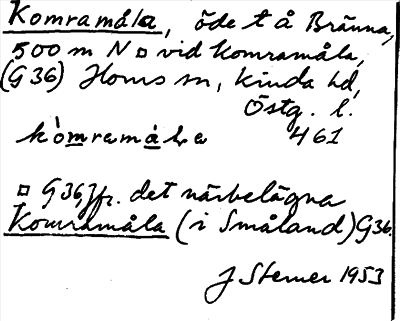 Komramåla, öde t å Bränna,
500 m N ¤ vid Komramåla,
(G 36) Horns sn, Kinda hd,
Östg. l.
kòmramåla 461
¤ G 36, Jfr. det närbelägna
Komramåla (i Småland) G36.
J Sterner 1953